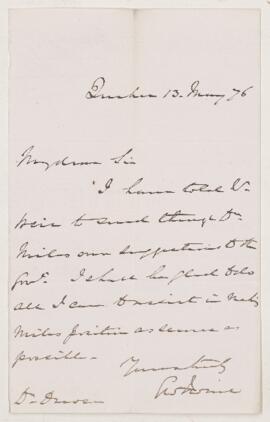 Quebec 13. May 76
My dear Sir
I have told W.
Weir to send through Dr
Miles our suggestions to the
Govt. I shall be glad to do
all I can to assist in
Miles position as secure as
possible.
Yours truly
Geo Irvine
Dr Dawson